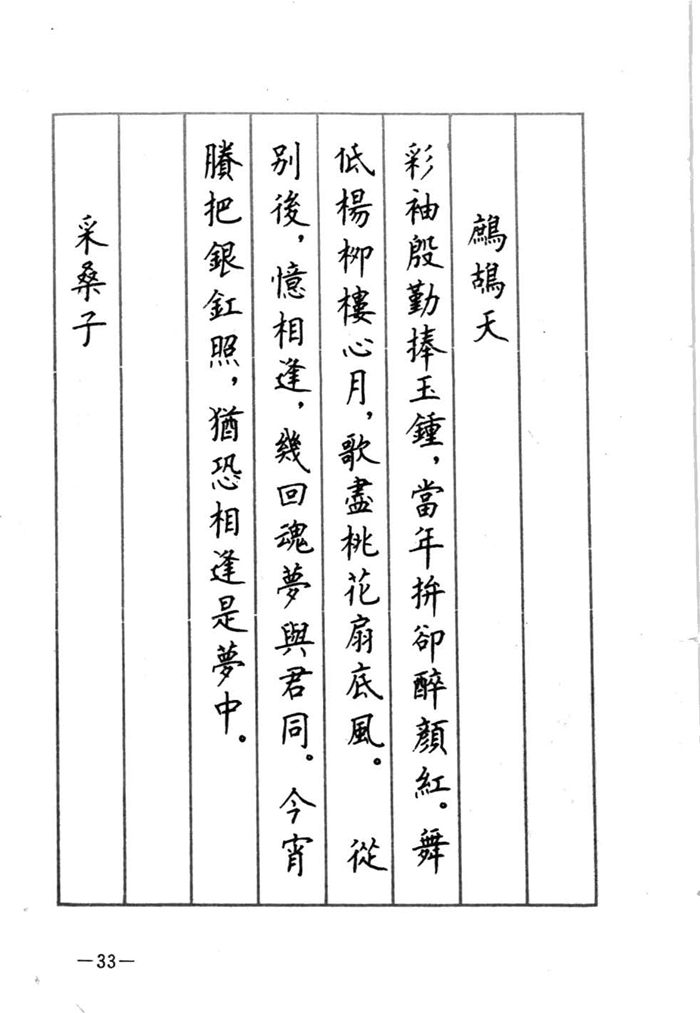 鷓鴣天
彩袖殷勤捧玉鍾，當年拚卻醉顏紅。舞
低楊柳樓心月，歌盡桃花扇底風。　從
別後，憶相逢，幾回魂夢與君同。今宵
賸把銀釭照，猶恐相逢是夢中。
采桑子
—33—